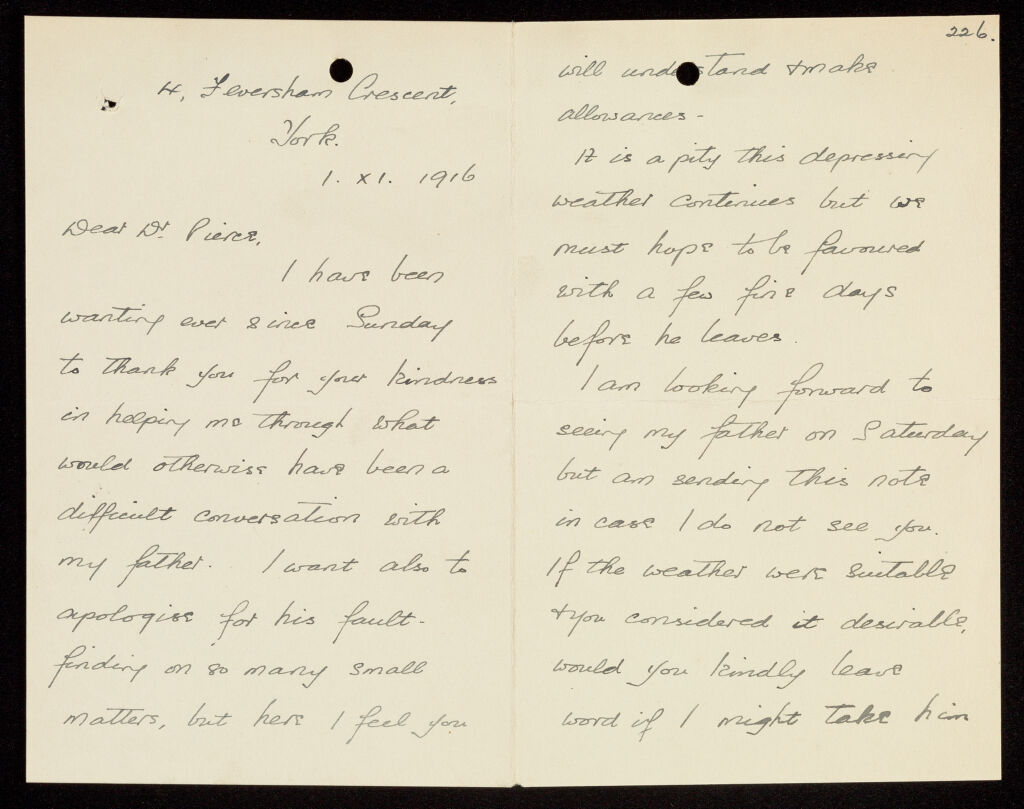 4, Feversham Crescent,
York.
1. XI. 1916
Dear Dr. Pierce,
I have been
wanting ever since Sunday
to thank you for your kindness
in helping me through what
would otherwise have been a
difficult conversation with
my father. I want also to
apologise for his fault-
finding on so many small
matters, but here I feel you
226.
will understand & make
allowances -
It is a pity this depressing
weather continues but we
must hope to be favoured
with a few fine days
before he leaves.
I am looking forward to
seeing my father on Saturday
but am sending this note
in case I do not see you.
If the weather were suitable
& you considered it desirable,
would you kindly leave
word if I might take him